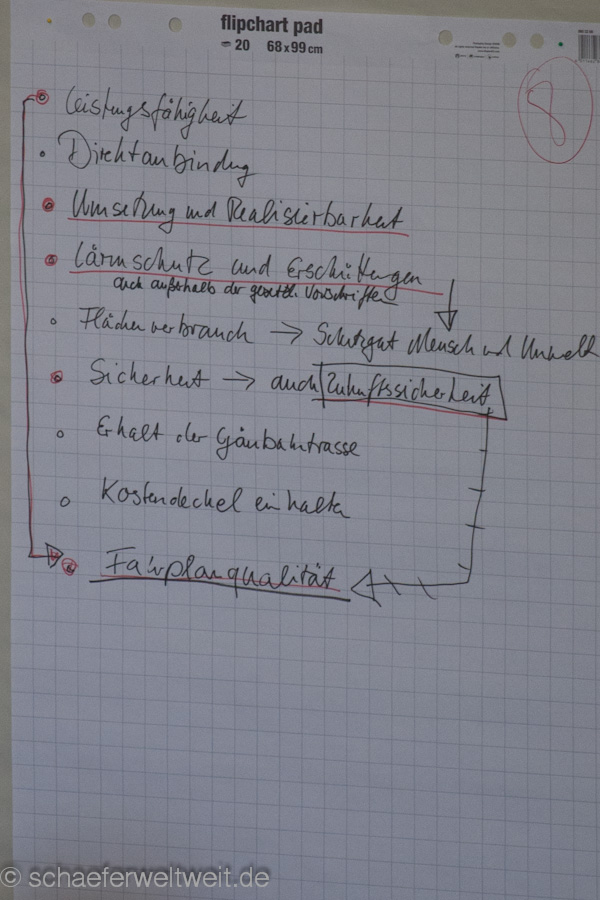 flipchart pad
20 68 x 99 cm
8
Leistungsfähigkeit
Direktanbindung
Umsetzung und Realisierbarkeit
Lärmschutz und Erschüttungen
auch außerhalb der gesetzl. Vorschriften
Flächenverbrauch → Schutzgut Mensch und Umwelt
Sicherheit → auch Zukunftssicherheit
Erhalt der Gäubahntrasse
Kostendeckel einhalten
Fahrplanqualität
© schaeferweltweit.de